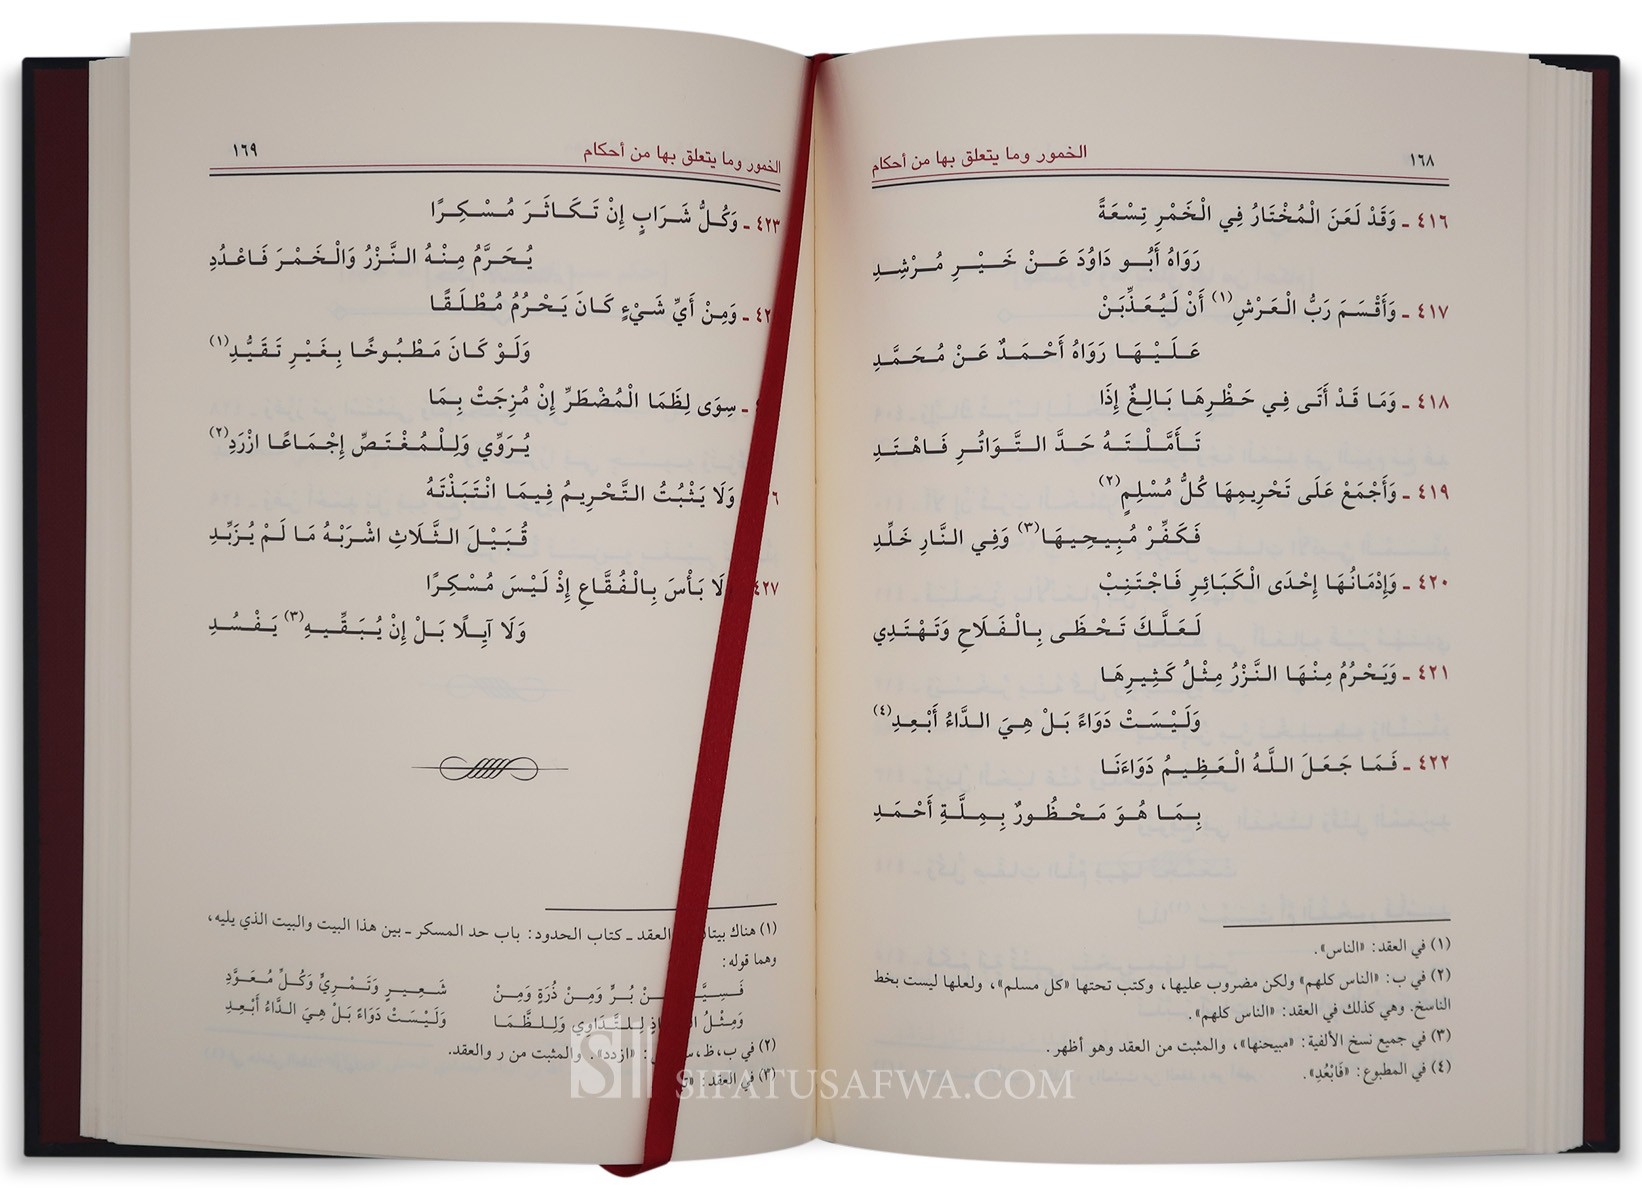 ١٦٨
الخمور وما يتعلق بها من أحكام
٤١٦ ـ وَقَدْ لَعَنَ الْمُخْتَارُ فِي الْخَمْرِ تِسْعَةً
رَوَاهُ أَبُو دَاوُدَ عَنْ خَيْرِ مُرْشِدِ
٤١٧ ـ وَأَقْسَمَ رَبُّ الْعَرْشِ(١) أَنْ لَيُعَذِّبَنْ
عَلَيْهَا رَوَاهُ أَحْمَدٌ عَنْ مُحَمَّدِ
٤١٨ ـ وَمَا قَدْ أَتَى فِي حَظْرِهَا بَالِغٌ إِذَا
تَأَمَّلْتَهُ حَدَّ التَّوَاتُرِ فَاهْتَدِ
٤١٩ ـ وَأَجْمَعَ عَلَى تَحْرِيمِهَا كُلُّ مُسْلِمٍ(٢)
فَكَفِّرْ مُبِيحِيهَا(٣) وَفِي النَّارِ خَلِّدِ
٤٢٠ ـ وَإِدْمَانُهَا إِحْدَى الْكَبَائِرِ فَاجْتَنِبْ
لَعَلَّكَ تَحْظَى بِالْفَلَاحِ وَتَهْتَدِي
٤٢١ ـ وَيَحْرُمُ مِنْهَا النَّزْرُ مِثْلُ كَثِيرِهَا
وَلَيْسَتْ دَوَاءً بَلْ هِيَ الدَّاءُ أَبْعِدِ(٤)
٤٢٢ ـ فَمَا جَعَلَ اللَّهُ الْعَظِيمُ دَوَاءَنَا
بِمَا هُوَ مَحْظُورٌ بِمِلَّةِ أَحْمَدِ
(١) في العقد: «الناس».
(٢) في ب: «الناس كلهم» ولكن مضروب عليها، وكتب تحتها «كل مسلم»، ولعلها ليست بخط
الناسخ. وهي كذلك في العقد: «الناس كلهم».
(٣) في جميع نسخ الألفية: «مبيحنها»، والمثبت من العقد وهو أظهر.
(٤) في المطبوع: «فَابْعُدِ».
الخمور وما يتعلق بها من أحكام
١٦٩
٤٢٣ ـ وَكُلُّ شَرَابٍ إِنْ تَكَاثَرَ مُسْكِرًا
يُحَرَّمُ مِنْهُ النَّزْرُ وَالْخَمْرَ فَاعْدُدِ
ـ وَمِنْ أَيِّ شَيْءٍ كَانَ يَحْرُمُ مُطْلَقًا
وَلَوْ كَانَ مَطْبُوخًا بِغَيْرِ تَقَيُّدِ(١)
ـ سِوَى لِظَمَا الْمُضْطَرِّ إِنْ مُزِجَتْ بِمَا
يُرَوِّي وَلِلْمُغْتَصِّ إِجْمَاعًا ازْرَدِ(٢)
وَلَا يَثْبُتُ التَّحْرِيمُ فِيمَا انْتَبَذْتَهُ
قُبَيْلَ الثَّلَاثِ اشْرَبْهُ مَا لَمْ يُزَبِّدِ
٤٢٧ وَلَا بَأْسَ بِالْفُقَّاعِ إِذْ لَيْسَ مُسْكِرًا
وَلَا آيِلًا بَلْ إِنْ يُبَقِّيهِ(٣) يَفْسُدِ
(١) هناك العقد ـ كتاب الحدود: باب حد المسكر ـ بين هذا البيت والبيت الذي يليه،
وهما قوله:
بُرٍّ وَمِنْ ذُرَةٍ وَمِنْ شَعِيرٍ وَتَمْرِيٍّ وَكُلِّ مُعَوَّدِ
وَمِثْلُ لِلتَّدَاوِي وَلِلظَّمَا وَلَيْسَتْ دَوَاءً بَلْ هِيَ الدَّاءُ أَبْعِدِ
(٢) في ب، ظ، «ازدد». والمثبت من ر والعقد.
(٣) في العقد:
SIFATUSAFWA.COM